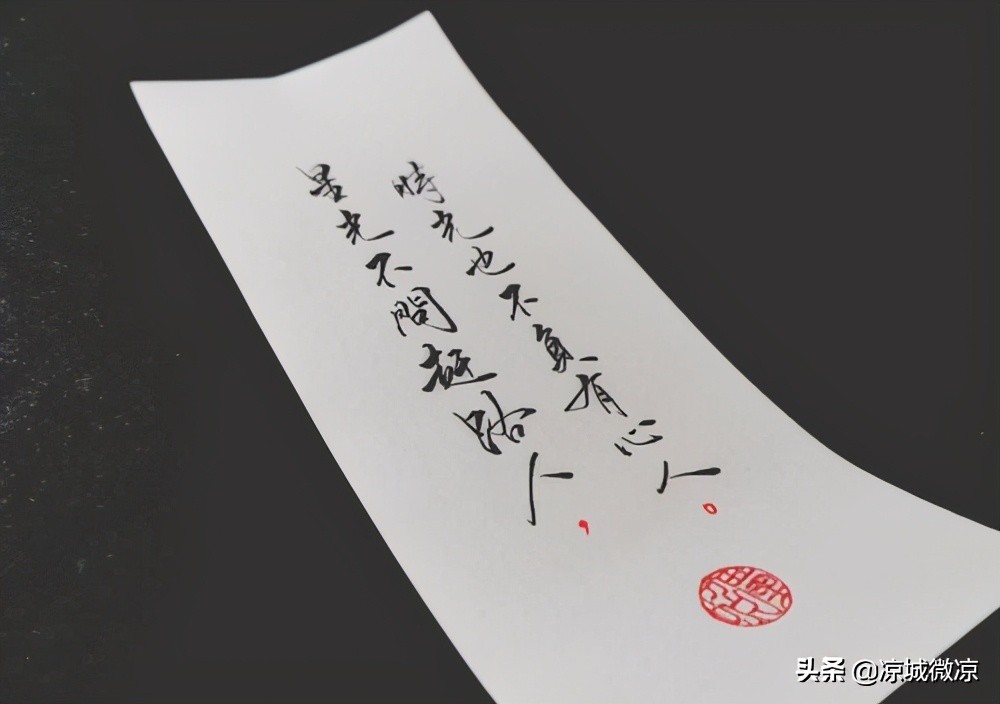 星光不問趕路人，
時光也不負有心人。
头条 @凉城微凉